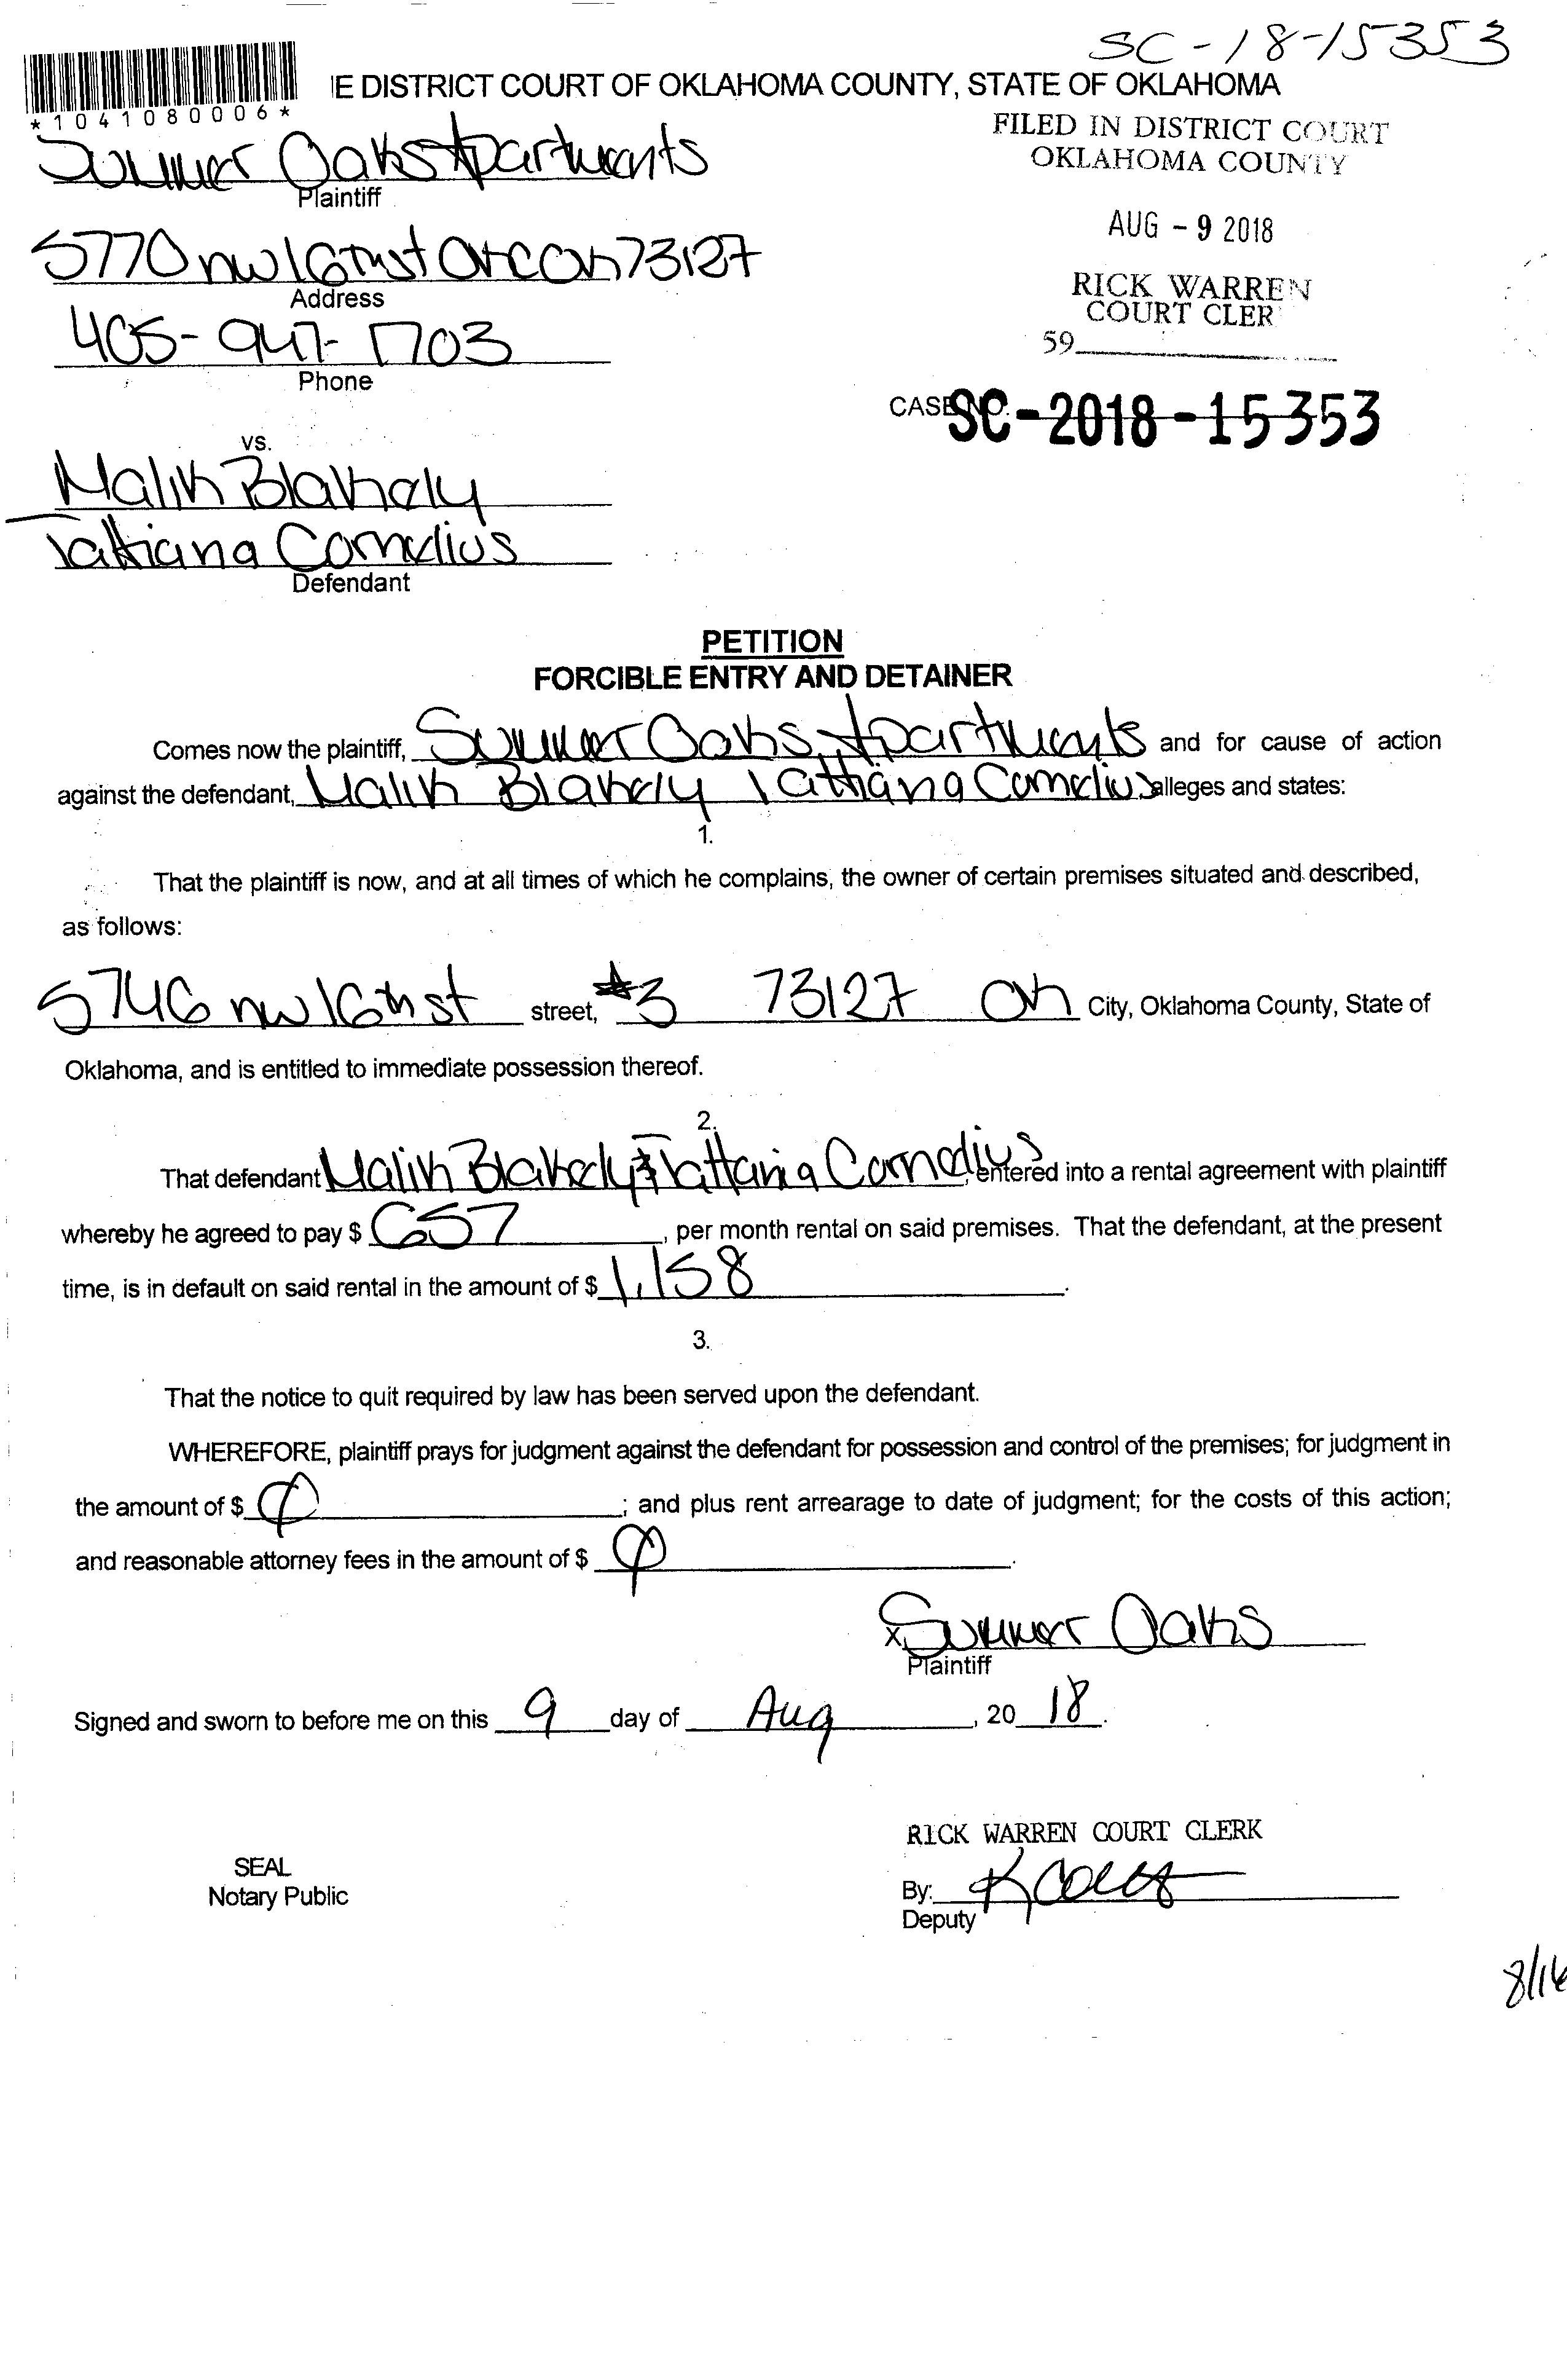 SC-18-15353
E DISTRICT COURT OF OKLAHOMA COUNTY, STATE OF OKLAHOMA
*1041080006*
FILED IN DISTRICT COURT
OKLAHOMA COUNTY
Summer Oaks Apartments
Plaintiff
AUG - 9 2018
5770 nw 16th st OKC OK 73127
Address
RICK WARREN
COURT CLER
405-947-1703
59
Phone
CASE NO. SC-2018-15353
vs.
Malik Blakely
Tattiana Cornelius
Defendant
PETITION
FORCIBLE ENTRY AND DETAINER
Comes now the plaintiff, Summer Oaks Apartments and for cause of action
against the defendant, Malik Blakely Tattiana Cornelius alleges and states:
1.
That the plaintiff is now, and at all times of which he complains, the owner of certain premises situated and described,
as follows:
5746 nw 16th st street, #3 73127 Ok City, Oklahoma County, State of
Oklahoma, and is entitled to immediate possession thereof.
2.
That defendant Malik Blakely & Tattania Cornelius, entered into a rental agreement with plaintiff
whereby he agreed to pay $ 657, per month rental on said premises. That the defendant, at the present
time, is in default on said rental in the amount of $ 1,158.
3.
That the notice to quit required by law has been served upon the defendant.
WHEREFORE, plaintiff prays for judgment against the defendant for possession and control of the premises; for judgment in
the amount of $ ∅; and plus rent arrearage to date of judgment; for the costs of this action;
and reasonable attorney fees in the amount of $ ∅.
x Summer Oaks
Plaintiff
Signed and sworn to before me on this 9 day of Aug, 20 18.
RICK WARREN COURT CLERK
SEAL
Notary Public
By:
Deputy
8/16